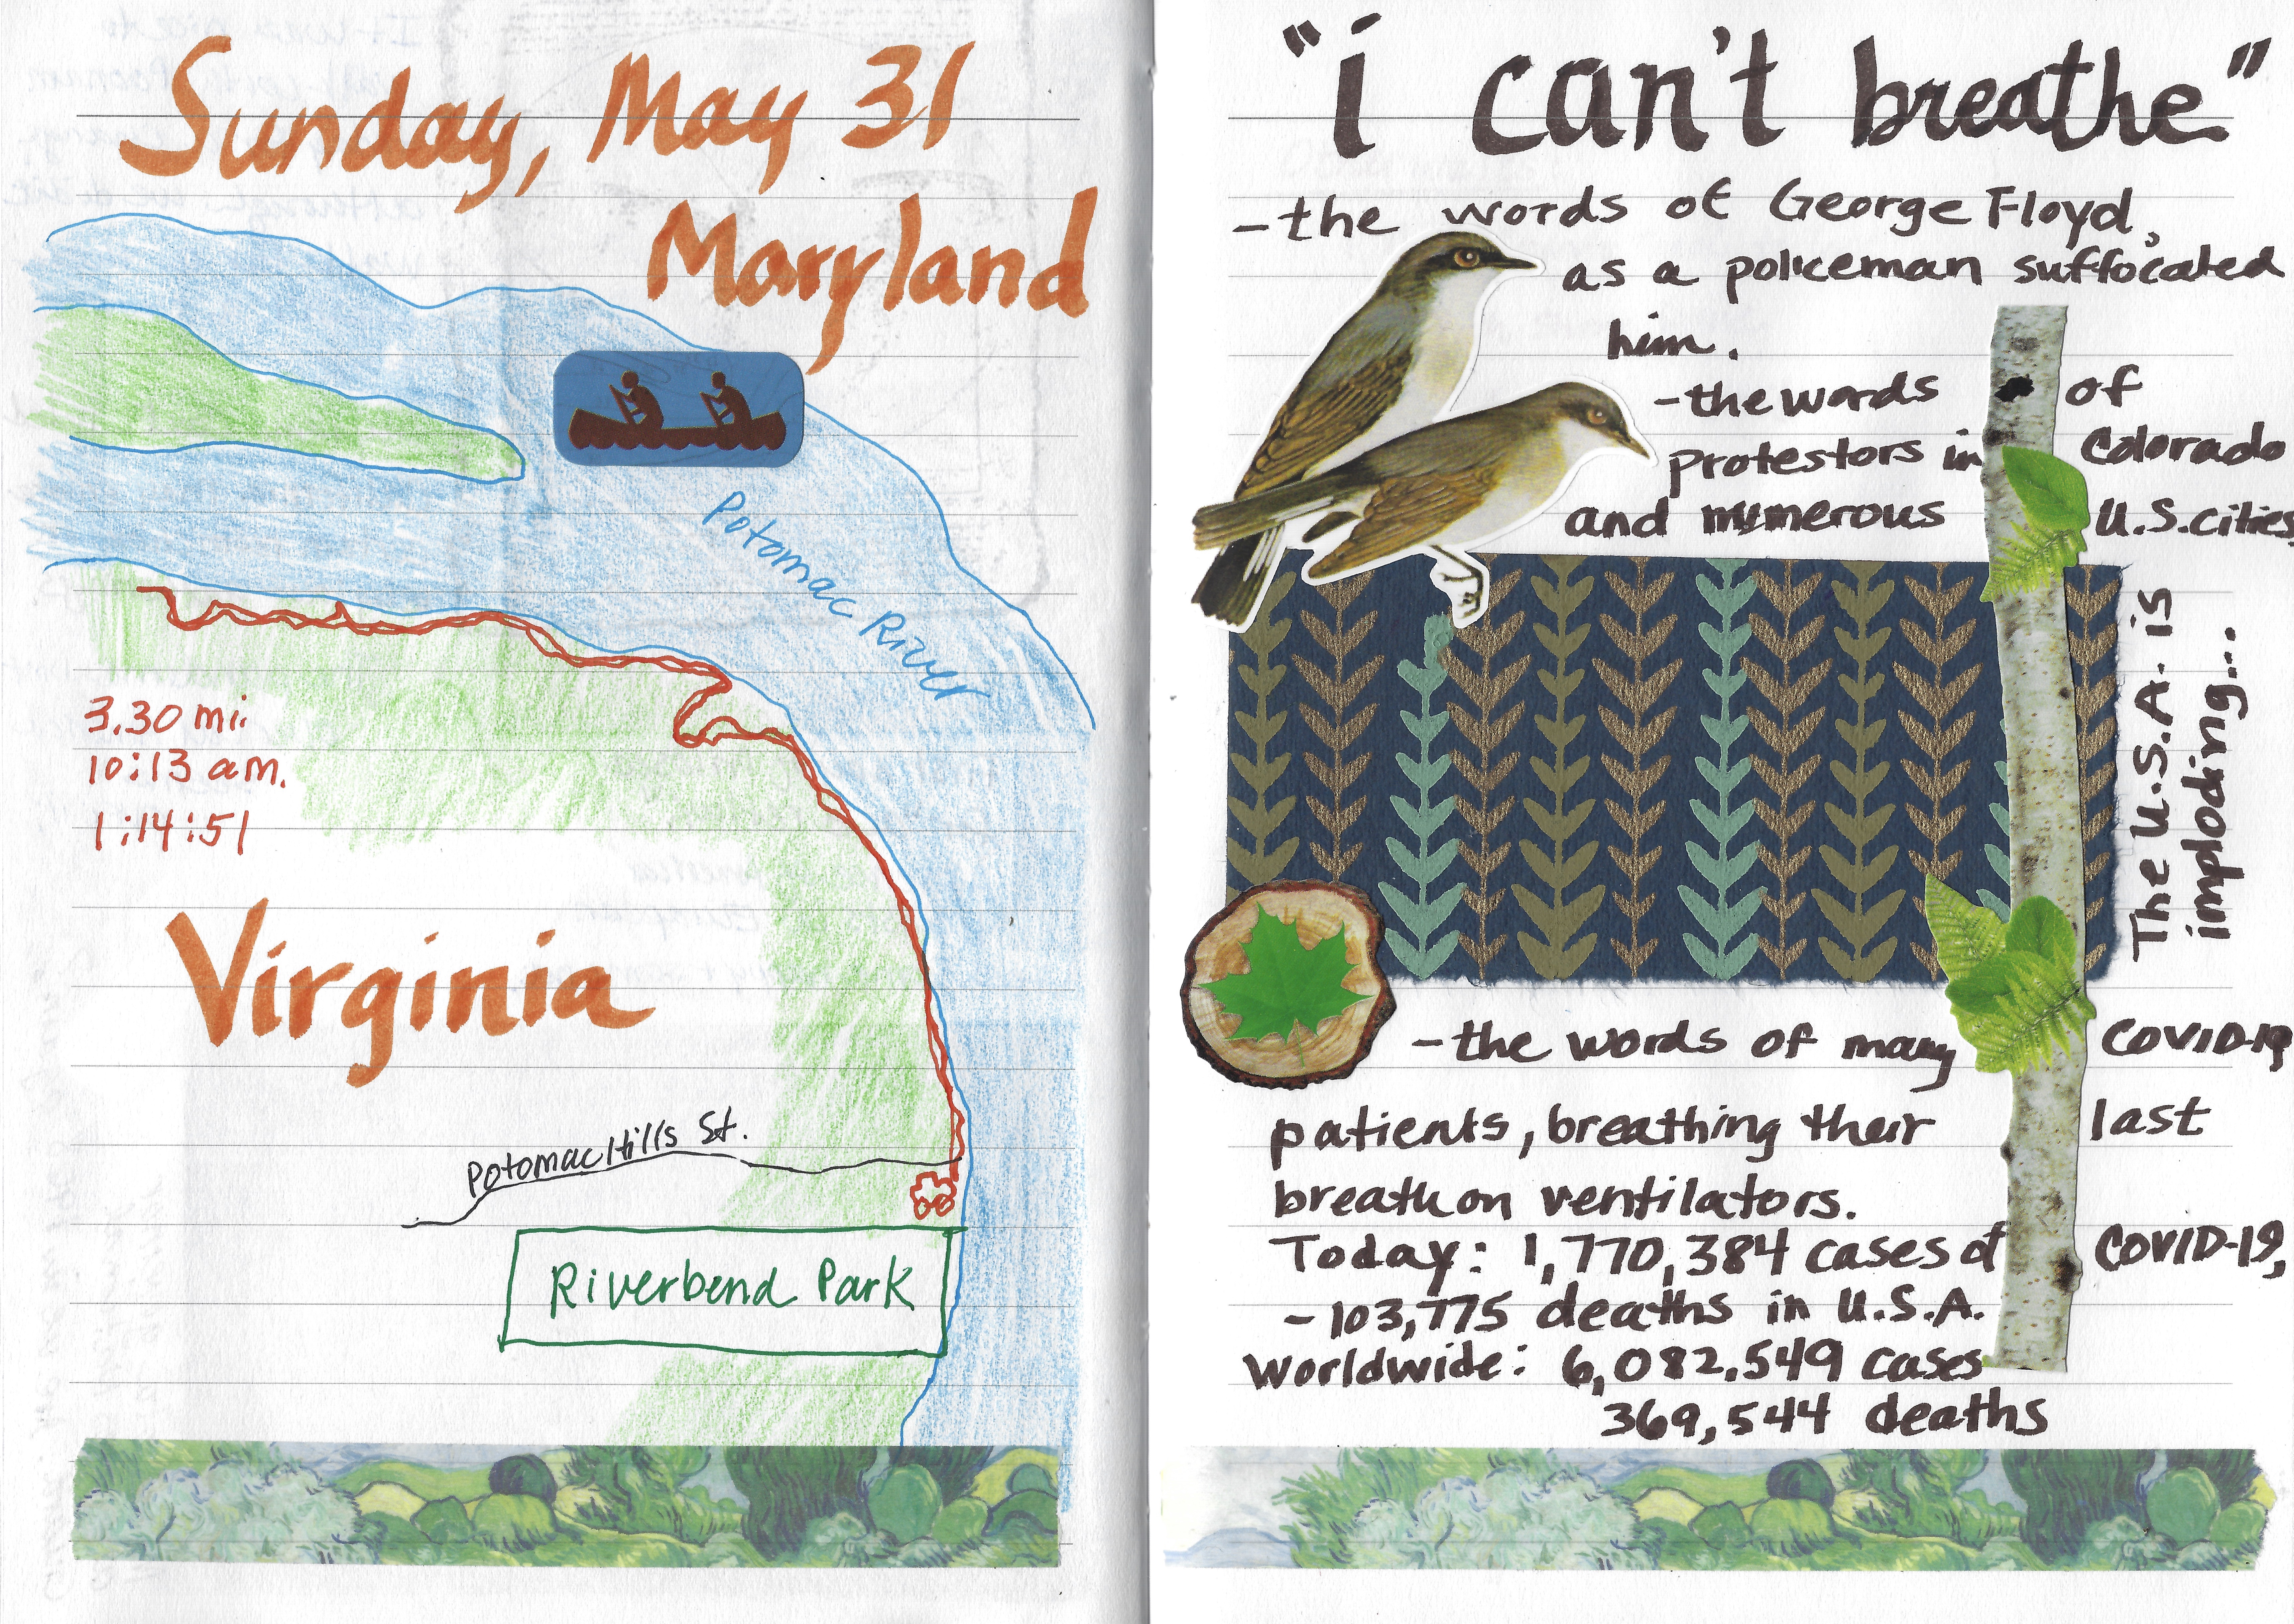 Sunday, May 31
Maryland
Potomac River
3.30 mi.
10:13 am.
1:14:51
Virginia
Potomac Hills St.
Riverbend Park
"i can't breathe"
- the words of George Floyd,
as a policeman suffocated
him.
- the words of
protestors in Colorado
and numerous U.S. cities
The U.S.A. is
imploding...
- the words of many COVID-19
patients, breathing their last
breath on ventilators.
Today: 1,770,384 cases of COVID-19,
- 103,775 deaths in U.S.A.
Worldwide: 6,082,549 cases
369,544 deaths